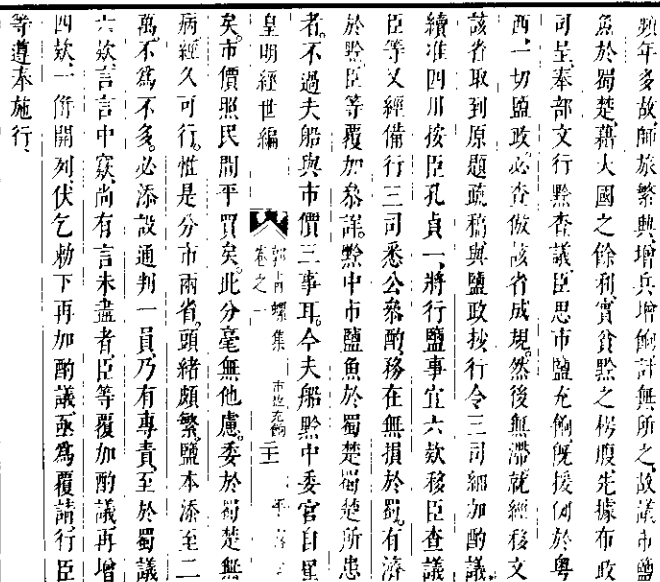 頻年多故師旅繁興增兵增餉計無所之故議市鹽
魚於蜀楚藉大國之餘利實貧黔之枵腹先據布政
司呈奉部文行黔查議臣思市鹽充餉旣援例於粤
西一切鹽政必查倣該省成規然後無滯就經移文
該省取到原題疏稿與鹽政抄行令三司細加酌議
續准四川按臣孔貞一將行鹽事宜六欵移臣查議
臣等又經備行三司悉公叅酌務在無損於蜀有濟
於黔臣等覆加叅詳黔中市鹽魚於蜀楚蜀楚所患
者不過夫船與市價三事耳今夫船黔中委官自
皇明經世編
郭青螺集
卷之一
市鹽充餉
矣市價照民間平買矣此分毫無他慮委於蜀楚無
病經久可行惟是分市兩省頭緒頗繁鹽本添至二
萬不爲不多必添設通判一員乃有專責至於蜀議
六欵言言中窾尚有言未盡者臣等覆加酌議再增
四欵一併開列伏乞勑下再加酌議亟爲覆請行臣
等遵奉施行